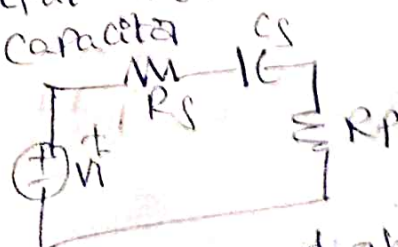 Capacitor
Cs
Rs
RP
+
Vi